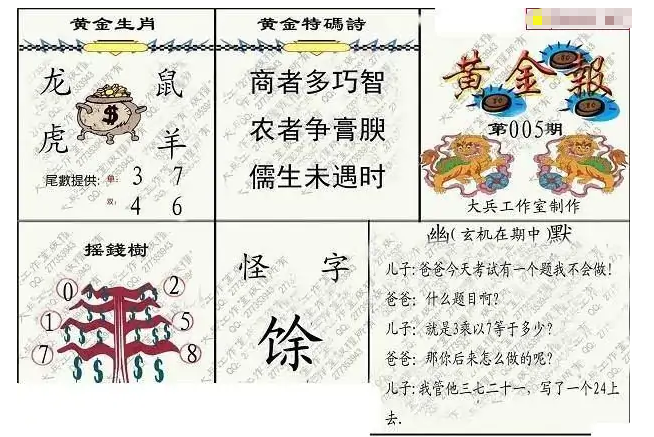 黄金生肖
龙 鼠
虎 羊
尾數提供: 单: 3 7
双: 4 6
黄金特碼詩
商者多巧智
农者争膏腴
儒生未遇时
黄金報
第005期
大兵工作室制作
摇錢樹
0 2
1 5
7 8
怪 字
馀
幽(玄机在期中)默
儿子:爸爸今天考试有一个题我不会做!
爸爸: 什么题目啊?
儿子: 就是3乘以7等于多少?
爸爸: 那你后来怎么做的呢?
儿子:我管他三七二十一，写了一个24上
去.